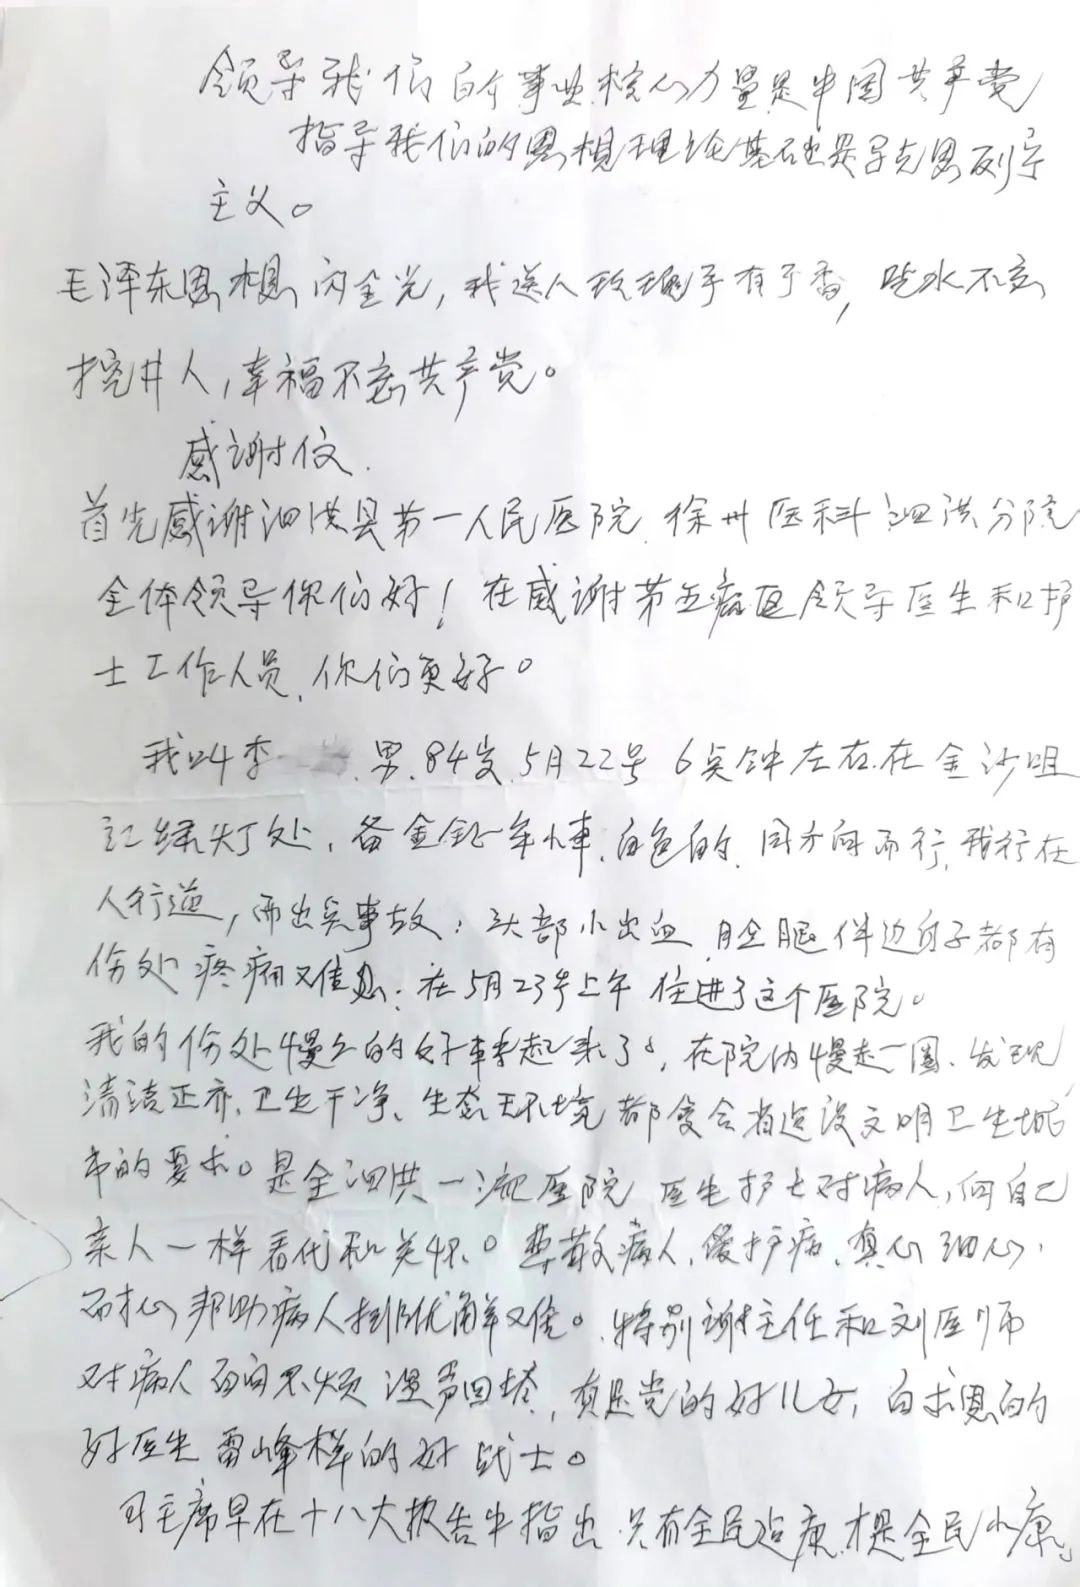 领导我们的事业核心力量是中国共产党
指导我们的思想理论基础是马克思列宁
主义。
毛泽东思想闪金光，我送人玫瑰手有于香，吃水不忘
挖井人，幸福不忘共产党。
感谢信
首先感谢泗洪县第一人民医院.徐州医科泗洪分院
全体领导你们好！在感谢第五病区领导医生和护
士工作人员.你们更好。
我叫李 男.84岁.5月22号6点钟左右.在金沙咀
红绿灯处，备 车.白色的.同方向而行.我行在
人行道，而出点事故：头部小出血 腿伴边身子都有
伤处疼痛又难忍.在5月23号上午住进了这个医院。
我的伤处慢之的好起来了，在院内慢走一圈、发现
清洁正亦、卫生干净、生态环境都复合省造设文明卫生城
市的要求。是全泗洪一流医院 医生护士对病人，何自己
亲人一样看代和关怀。尊敬病人、爱护病、真心细心.
而才心帮助病人排忧解又难。特别谢主任和刘医师
对病人百问不烦 回塔，真是党的好儿女，白求恩的
好医生雷峰样的好战士。
习主席早在十八大报告中指出 只有全民 康.才是全民小康』